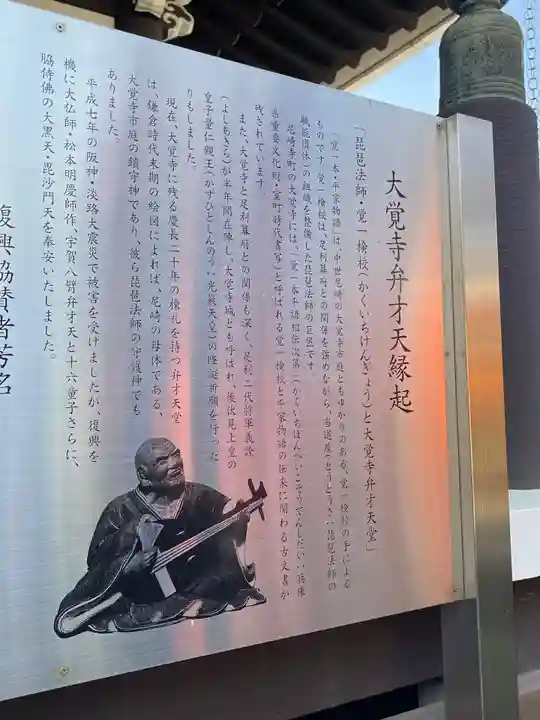 大覚寺弁才天縁起
「琵琶法師・覚一検校(かくいちけんぎょう)と大覚寺弁才天堂」
「覚一本・平家物語」は、中世尼崎の大覚寺市庭ともゆかりのある、覚一検校の手による
ものです。覚一検校は、足利幕府との関係を強めながら、当道座(とうどうざ:琵琶法師の
職能団体)の組織を整備した琵琶法師の巨匠です。
尼崎寺町の大覚寺には、「覚一本平語相伝次第(かくいちほんへいごそうでんしだい:兵庫
県重要文化財・室町時代書写)と呼ばれる覚一検校と平家物語の伝来に関わる古文書が
残されています。
また、大覚寺と足利幕府との関係も深く、足利二代将軍義詮
(よしあきら)が半年間在陣し、大覚寺城とも呼ばれ、後伏見上皇の
皇子量仁親王(かずひとしんのう:光厳天皇)の降誕祈願を行った
りもしました。
現在、大覚寺に残る慶長二十年の棟札を持つ弁才天堂
は、鎌倉時代末期の絵図によれば、尼崎の母体である、
大覚寺市庭の鎮守神であり、彼ら琵琶法師の守護神でも
ありました。
平成七年の阪神・淡路大震災で被害を受けましたが、復興を
機に大仏師・松本明慶師作、宇賀八臂弁才天と十六童子さらに、
脇侍佛の大黒天・毘沙門天を奉安いたしました。
復興協賛者芳名